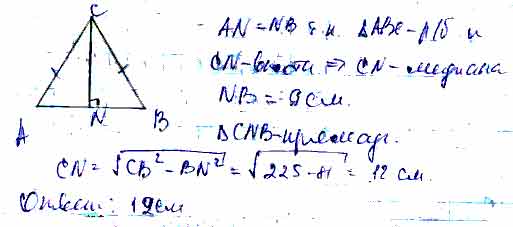 C
A N B
AN = NB т.к. ΔABC - р/б и
CN - высота ⇒ CN - медиана
NB = 9 см.
ΔCNB - прямоуг.
CN = √CB² - BN² = √225 - 81 = 12 см.
Ответ: 12 см